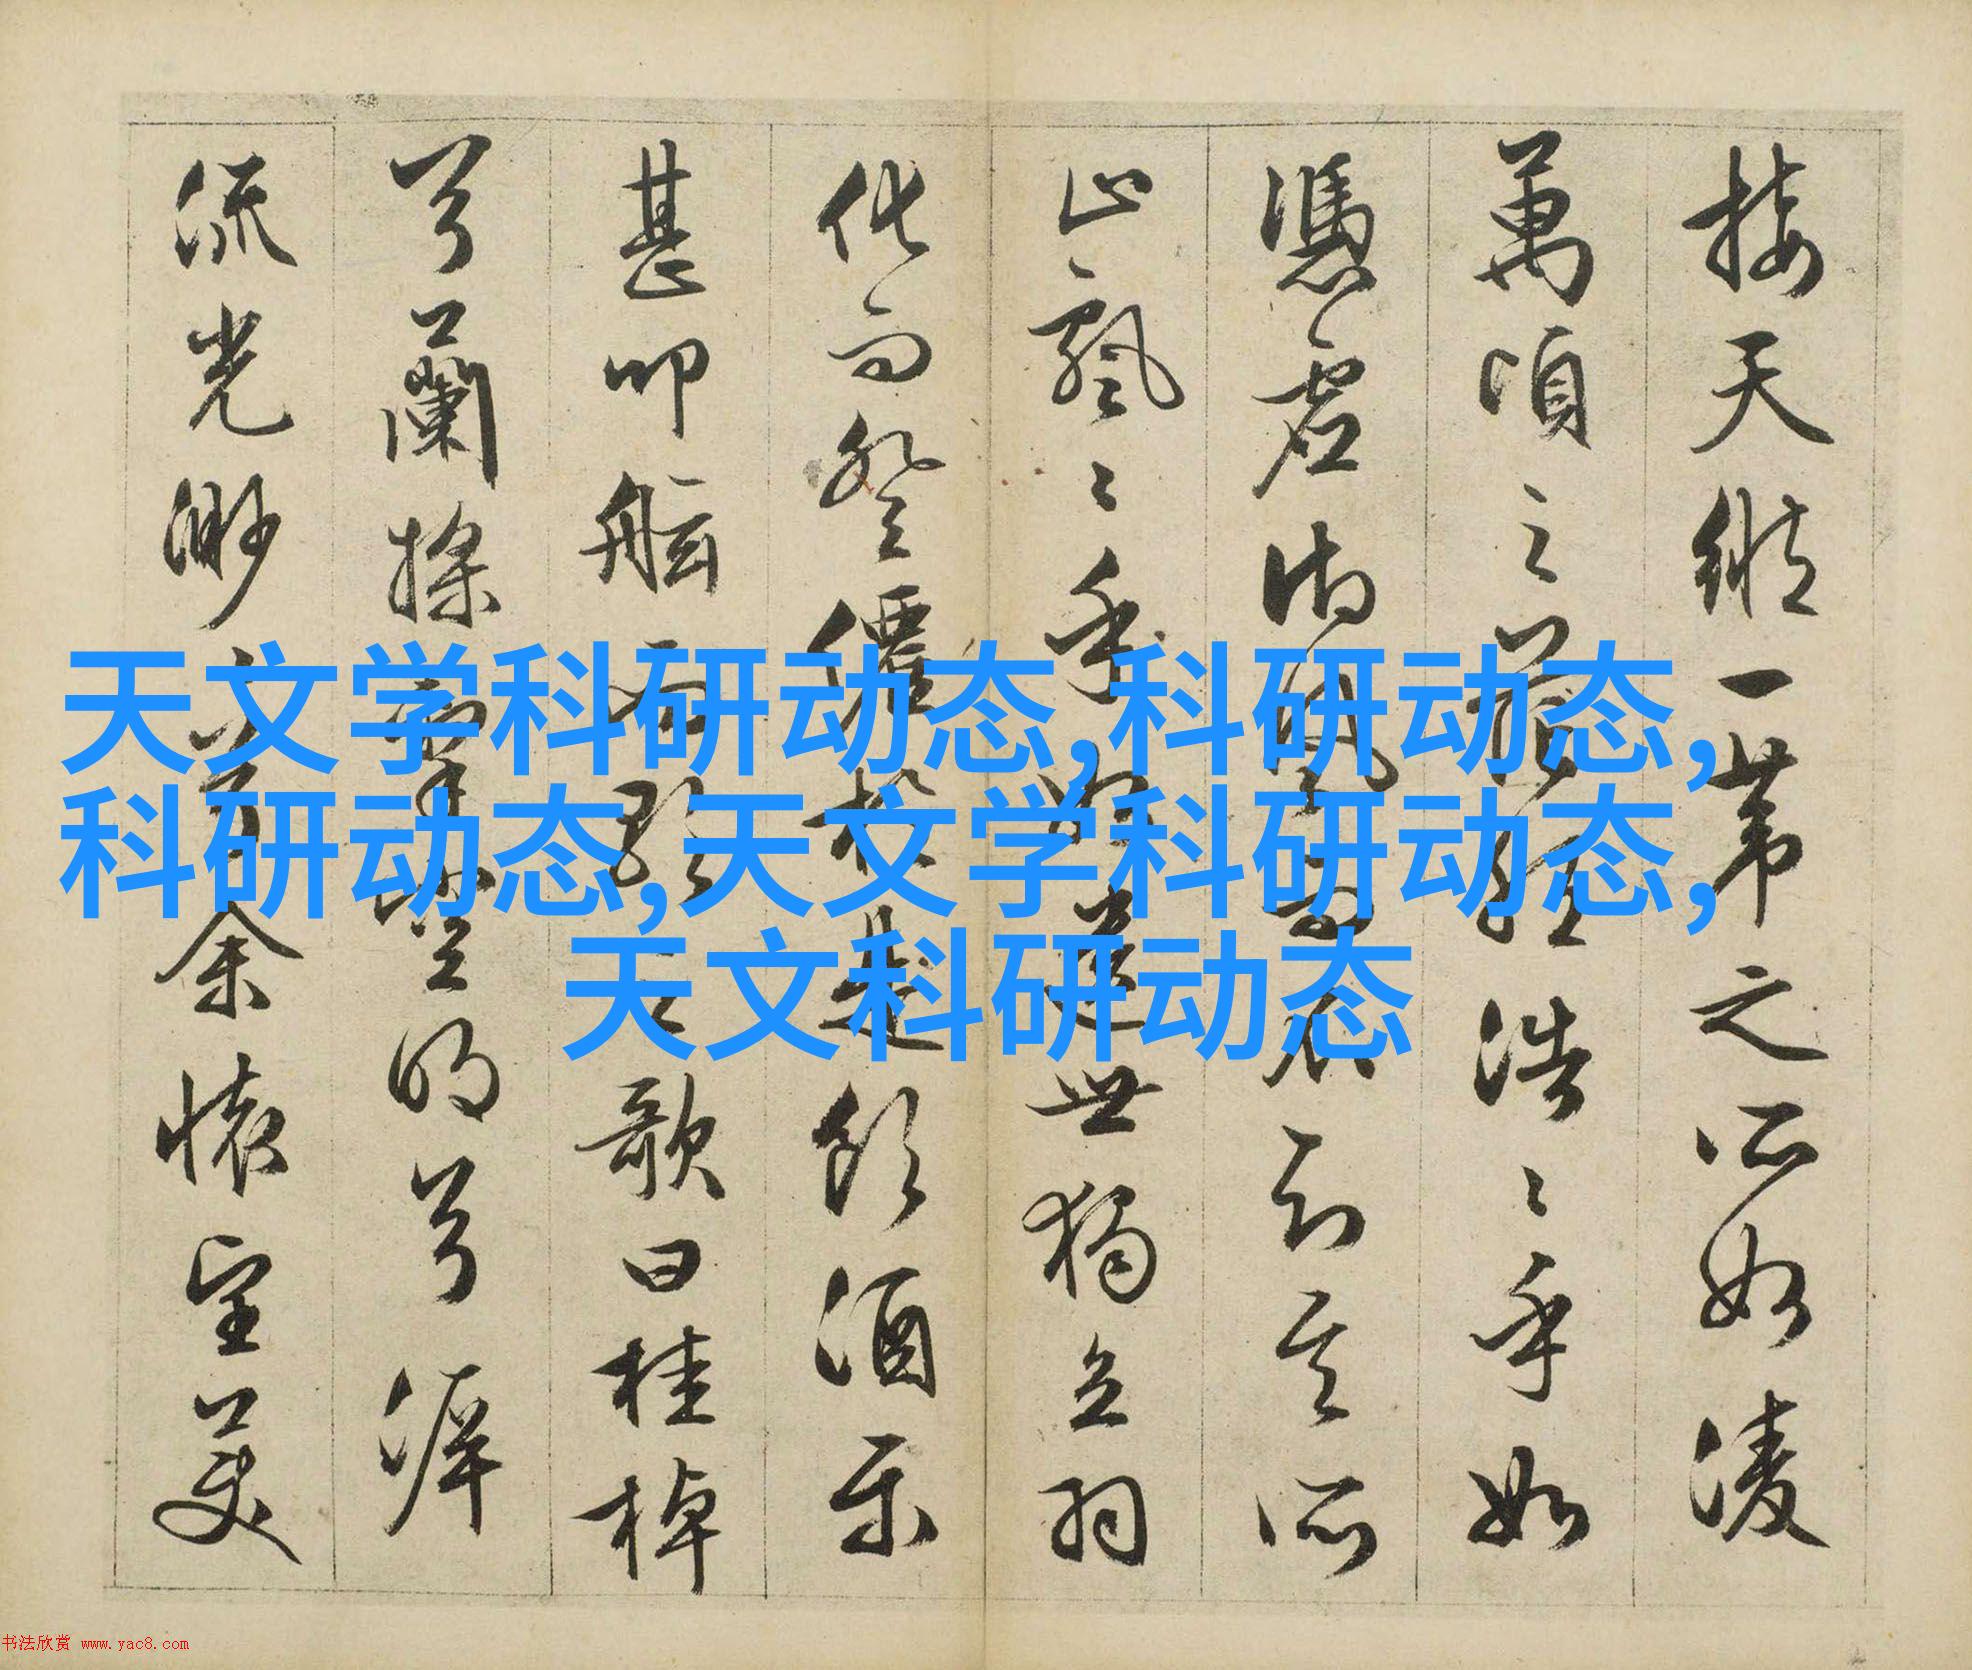 接天縱一葦之所如淩
萬頃之茫然浩〻乎如
憑虛御風而不知其所
止飄〻乎如遺世獨立羽
化而登僊於是飲酒樂
甚叩舷而歌之歌曰桂棹
兮蘭槳擊空明兮泝
流光渺〻兮余懷望美
天文学科研动态,科研动态,
科研动态,天文学科研动态,
天文科研动态
书法欣赏 www.yac8.com